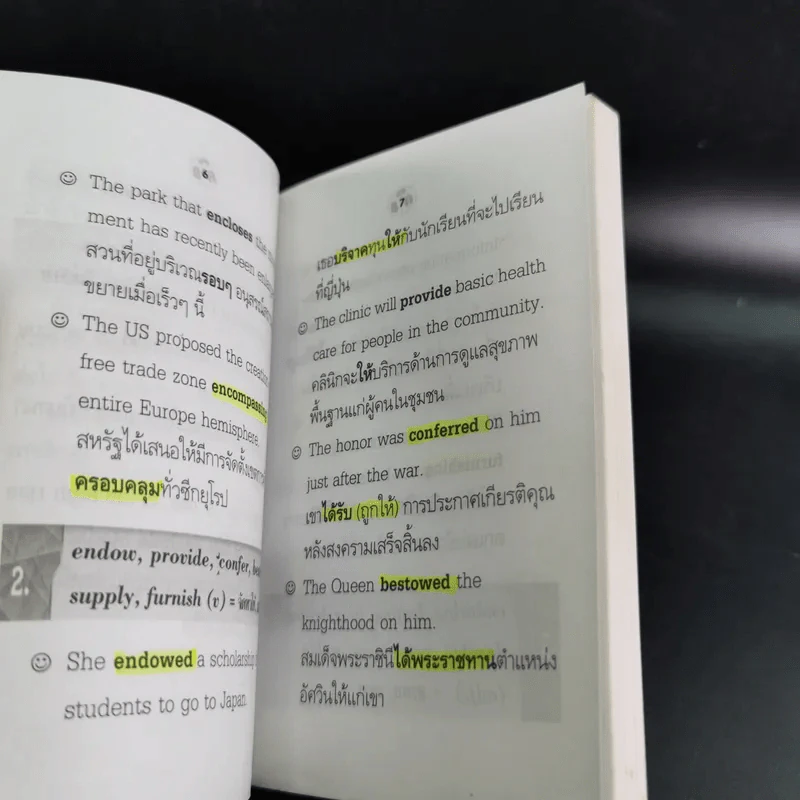 6
The park that encloses the
ment has recently been
สวนที่อยู่บริเวณรอบๆ
ขยายเมื่อเร็วๆ นี้
The US proposed the
free trade zone encompassing
entire Europe hemisphere.
สหรัฐได้เสนอให้มีการจัดตั้ง
ครอบคลุมทั่วซีกยุโรป
2.
endow, provide, confer,
supply, furnish (v) =
She endowed a
students to go to Japan.
7
เธอบริจาคทุนให้กับนักเรียนที่จะไปเรียน
ที่ญี่ปุ่น
The clinic will provide basic health
care for people in the community.
คลินิกจะให้บริการด้านการดูแลสุขภาพ
พื้นฐานแก่ผู้คนในชุมชน
The honor was conferred on him
just after the war.
เขาได้รับ (ถูกให้) การประกาศเกียรติคุณ
หลังสงครามเสร็จสิ้นลง
The Queen bestowed the
knighthood on him.
สมเด็จพระราชินีได้พระราชทานตำแหน่ง
อัศวินให้แก่เขา